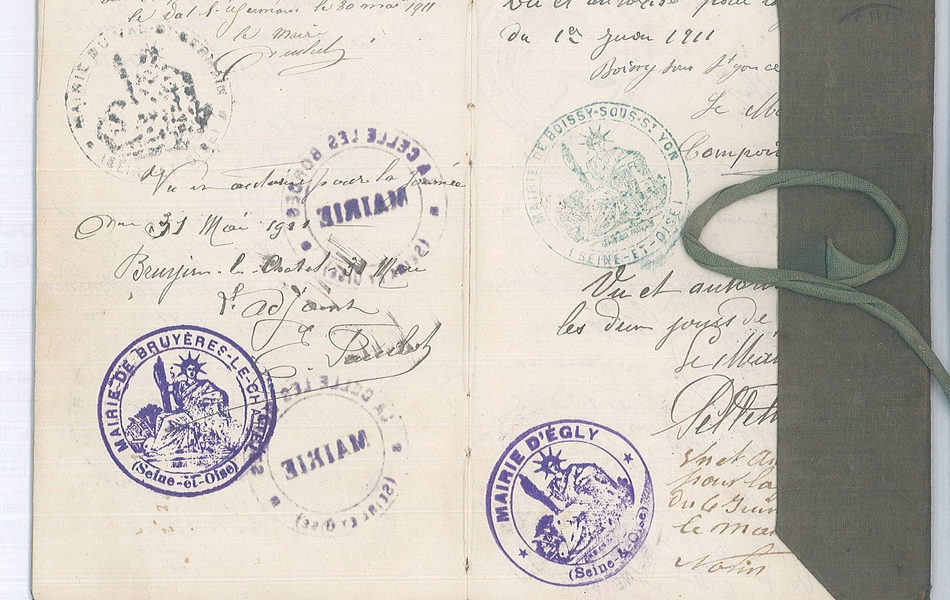 le Val St Germain le 30 mai 1911
le Maire
MAIRIE DU VAL-ST-GERMAIN
Vu et autorisé pour la Journée
du 31 Mai 1911
Bruyères-le-Chatel 31 Mai
L'adjoint
MAIRIE DE BRUYÈRES-LE-CHATEL
(Seine-et-Oise)
LA CELLE LES BORDES
MAIRIE
(SEINE ET OISE)
LA CELLE LES
MAIRIE
(SEINE ET OISE)
Vu et autorisé pour la
du 1er Juin 1911
Boissy sous St Yon ce
Le
MAIRIE DE BOISSY-SOUS-ST YON
(SEINE-ET-OISE)
Vu et autori
les deux jours de
Le Mai
MAIRIE D'ÉGLY
(Seine-&-Oise)
Vu et au
pour la
du 6 Juin
le mai